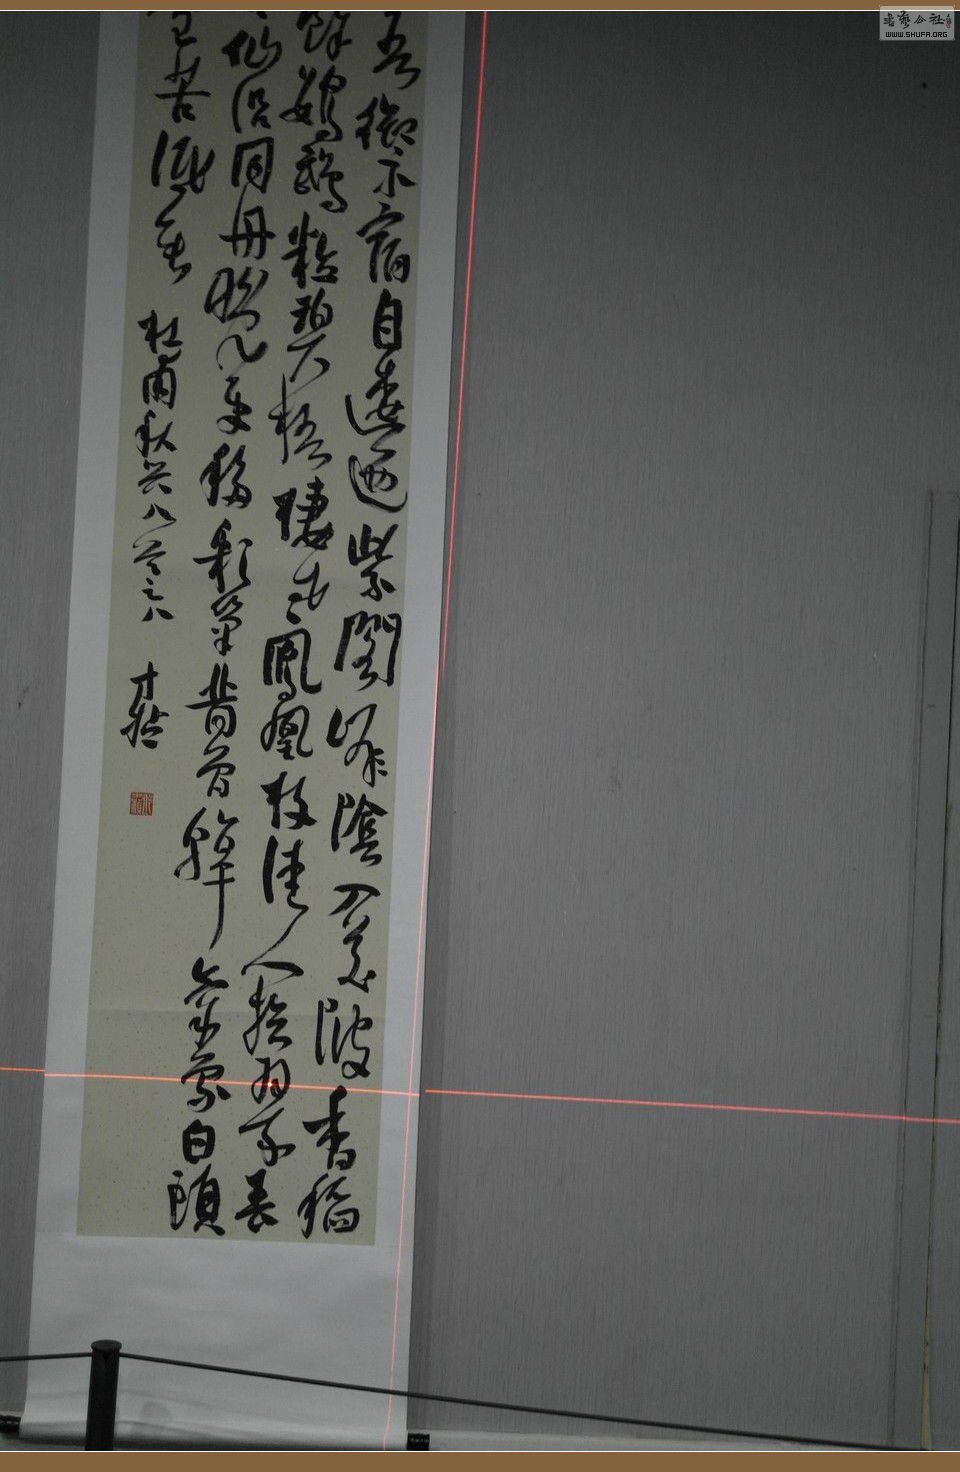 吾御宿自逶迤紫閣峰陰入渼陂香稻
餘鸚鵡粒碧梧棲老鳳凰枝佳人拾翠春
仙侶同舟晚更移彩筆昔曾幹氣象白頭
望苦低垂 杜甫秋興八首之八
書藝公社
WWW.SHUFA.ORG